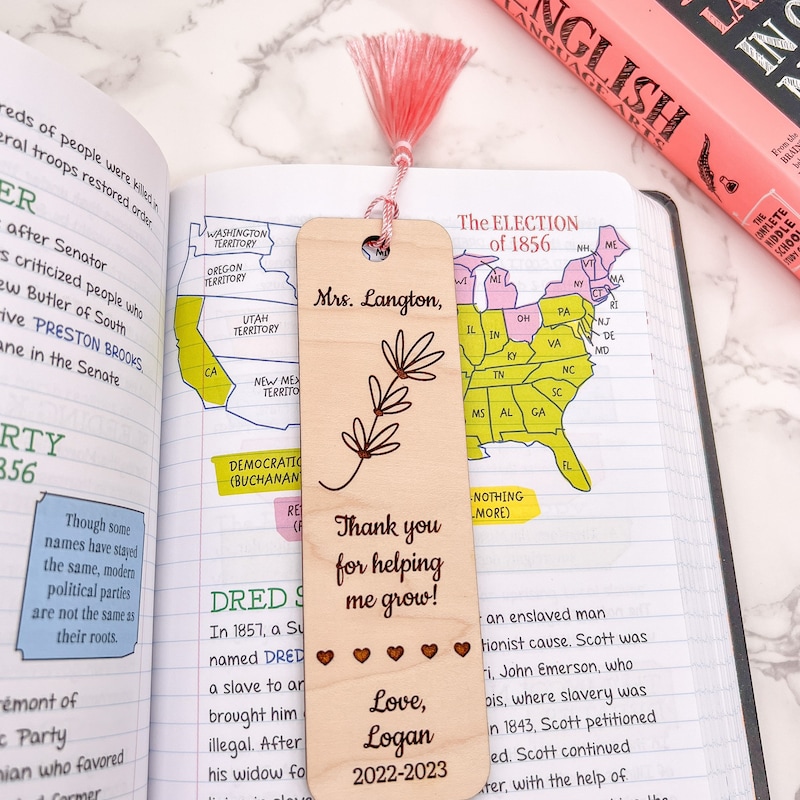 reds of people were killed in
eral troops restored order.
ER
after Senator
s criticized people who
ew Butler of South
tive PRESTON BROOKS.
ane in the Senate
RTY
856
Though some
names have stayed
the same, modern
political parties
are not the same as
their roots.
rémont of
c Party
nian who favored
former
The ELECTION
of 1856
WASHINGTON
TERRITORY
OREGON
TERRITORY
UTAH
TERRITORY
NEW MEX
TERRITO
CA
WI
MI
IL
IN
OH
PA
KY
VA
TN
NC
SC
MS
AL
GA
FL
NH
VT
ME
MA
CT
RI
NJ
DE
MD
DEMOCRATIC
(BUCHANAN
RE
(F
-NOTHING
MORE)
Mrs. Langton,
Thank you
for helping
me grow!
Love,
Logan
2022-2023
DRED S
In 1857, a Su an enslaved man
named DRED tionist cause. Scott was
a slave to ar ri, John Emerson, who
brought him ois, where slavery was
illegal. After n 1843, Scott petitioned
his widow fo ed. Scott continued
ter, with the help of
ENGLISH
LANGUAGE ARTS
From the
BRAIN
THE
COMPLETE
MIDDLE
SCHOOL
STUDY
IN O
N